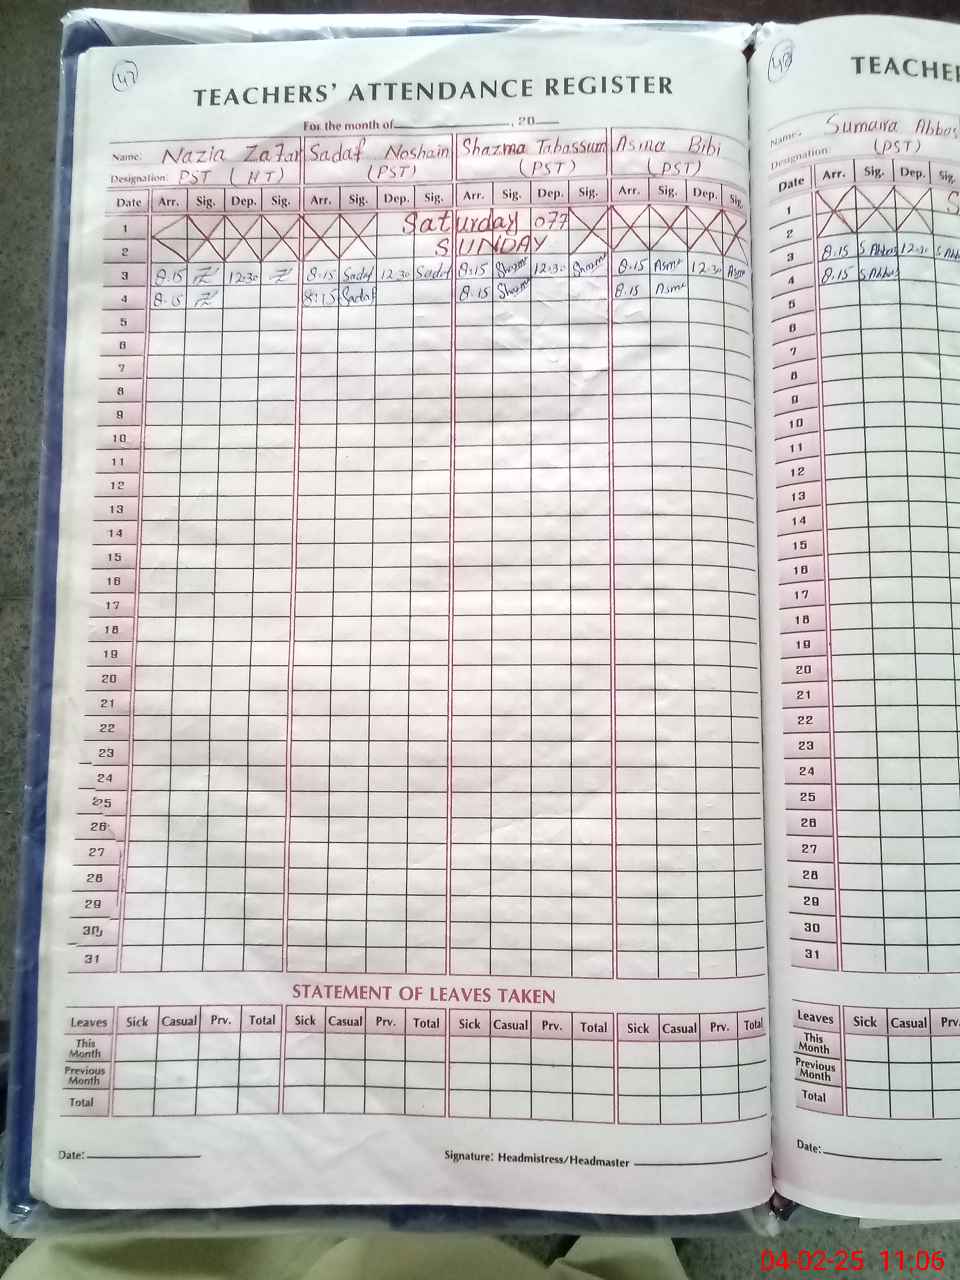 47
TEACHERS' ATTENDANCE REGISTER
For the month of , 20
Name: Nazia Zafar Sadaf Noshain Shazma Tabassum Asma Bibi
Designation: PST (HT) (PST) (PST) (PST)
Date Arr. Sig. Dep. Sig. Arr. Sig. Dep. Sig. Arr. Sig. Dep. Sig. Arr. Sig. Dep. Sig.
1 Saturday
2 SUNDAY
3 8:15 12:30 8:15 Sadaf 12:30 Sadaf 8:15 Shazma 12:30 Shazma 8:15 Asma 12:30 Asma
4 8:15 8:15 Sadaf 8:15 Shazma 8:15 Asma
5
6
7
8
9
10
11
12
13
14
15
16
17
18
19
20
21
22
23
24
25
26
27
28
29
30
31
STATEMENT OF LEAVES TAKEN
Leaves Sick Casual Prv. Total Sick Casual Prv. Total Sick Casual Prv. Total Sick Casual Prv. Total
This Month
Previous Month
Total
Date: Signature: Headmistress/Headmaster
48
TEACHER
Name: Sumaira Abbas
Designation: (PST)
Date Arr. Sig. Dep. Sig.
1 S
2
3 8:15 S Abbas 12:30 S Abb
4 8:15 S Abbas
5
6
7
8
9
10
11
12
13
14
15
16
17
18
19
20
21
22
23
24
25
26
27
28
29
30
31
Leaves Sick Casual Prv.
This Month
Previous Month
Total
Date:
04-02-25 11:06